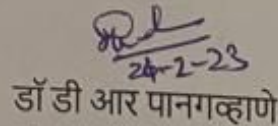 24-2-23
डॉ डी आर पानगव्हाणे